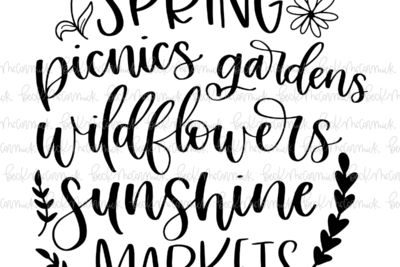 SPRING
picnics gardens
wildflowers
sunshine
MARKETS